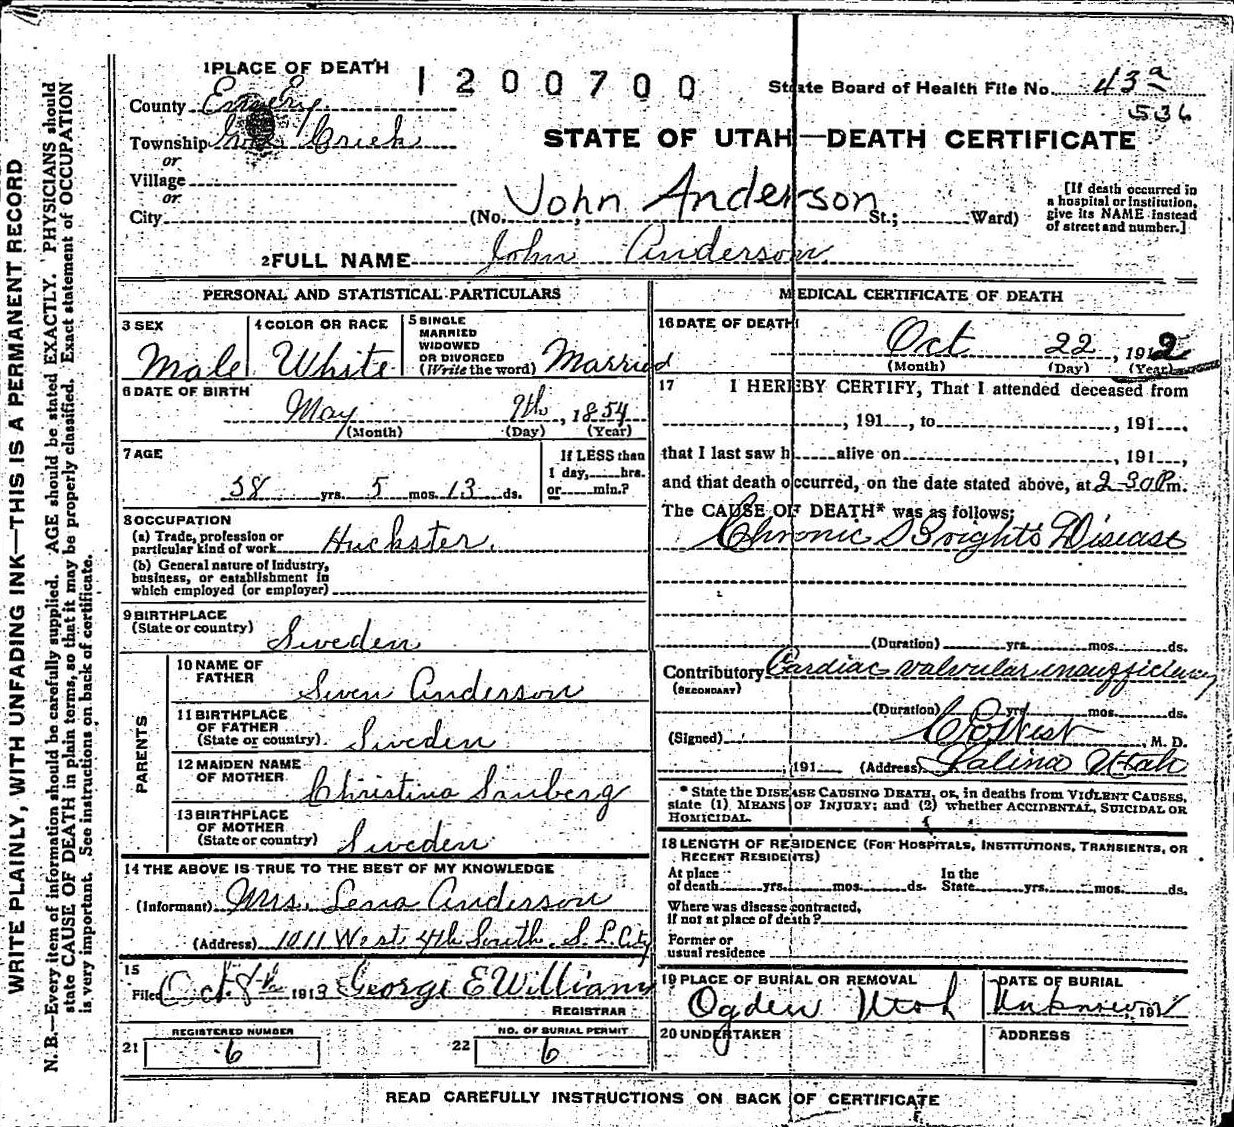 WRITE PLAINLY, WITH UNFADING INK—THIS IS A PERMANENT RECORD
N. B.—Every item of information should be carefully supplied. AGE should be stated EXACTLY. PHYSICIANS should
state CAUSE OF DEATH in plain terms, so that it may be properly classified. Exact statement of OCCUPATION
is very important. See instructions on back of certificate.
1 PLACE OF DEATH
1200700
State Board of Health File No. 43 a
536
County Emery
Township
or
Village
or
City
STATE OF UTAH—DEATH CERTIFICATE
(No. John Anderson St.; Ward)
[If death occurred in
a hospital or institution,
give its NAME instead
of street and number.]
2 FULL NAME John Anderson
PERSONAL AND STATISTICAL PARTICULARS
3 SEX
Male
4 COLOR OR RACE
White
5 SINGLE
MARRIED
WIDOWED
OR DIVORCED
(Write the word) Married
6 DATE OF BIRTH
May 9th, 1854
(Month) (Day) (Year)
7 AGE
58 yrs. 5 mos. 13 ds.
If LESS than
1 day, hrs.
or min.?
8 OCCUPATION
(a) Trade, profession or
particular kind of work Huckster.
(b) General nature of Industry,
business, or establishment in
which employed (or employer)
9 BIRTHPLACE
(State or country) Sweden
PARENTS
10 NAME OF
FATHER Swen Anderson
11 BIRTHPLACE
OF FATHER
(State or country) Sweden
12 MAIDEN NAME
OF MOTHER Christina
13 BIRTHPLACE
OF MOTHER
(State or country) Sweden
14 THE ABOVE IS TRUE TO THE BEST OF MY KNOWLEDGE
(Informant) Mrs. Lena Anderson
(Address) 1011 West 4th South. S. L. City
15
Filed Oct. 8th 1913 George E Williams
REGISTRAR
REGISTERED NUMBER
21 6
NO. OF BURIAL PERMIT
22 6
MEDICAL CERTIFICATE OF DEATH
16 DATE OF DEATH
Oct 22, 1912
(Month) (Day) (Year)
17 I HEREBY CERTIFY, That I attended deceased from
, 191 , to , 191 ,
that I last saw h alive on , 191 ,
and that death occurred, on the date stated above, at 2 30 P m.
The CAUSE OF DEATH* was as follows:
Chronic Brights Disease
(Duration) yrs. mos. ds.
Contributory Cardiac valvular insufficiency
(SECONDARY)
(Duration) yrs. mos. ds.
(Signed) West, M. D.
, 191 (Address) Salina Utah
* State the DISEASE CAUSING DEATH, or, in deaths from VIOLENT CAUSES,
state (1) MEANS OF INJURY; and (2) whether ACCIDENTAL, SUICIDAL OR
HOMICIDAL.
18 LENGTH OF RESIDENCE (FOR HOSPITALS, INSTITUTIONS, TRANSIENTS, OR
RECENT RESIDENTS)
At place
of death yrs. mos. ds.
In the
State yrs. mos. ds.
Where was disease contracted,
if not at place of death?
Former or
usual residence
19 PLACE OF BURIAL OR REMOVAL
Ogden Utah
DATE OF BURIAL
Unknown, 191
20 UNDERTAKER
ADDRESS
READ CAREFULLY INSTRUCTIONS ON BACK OF CERTIFICATE